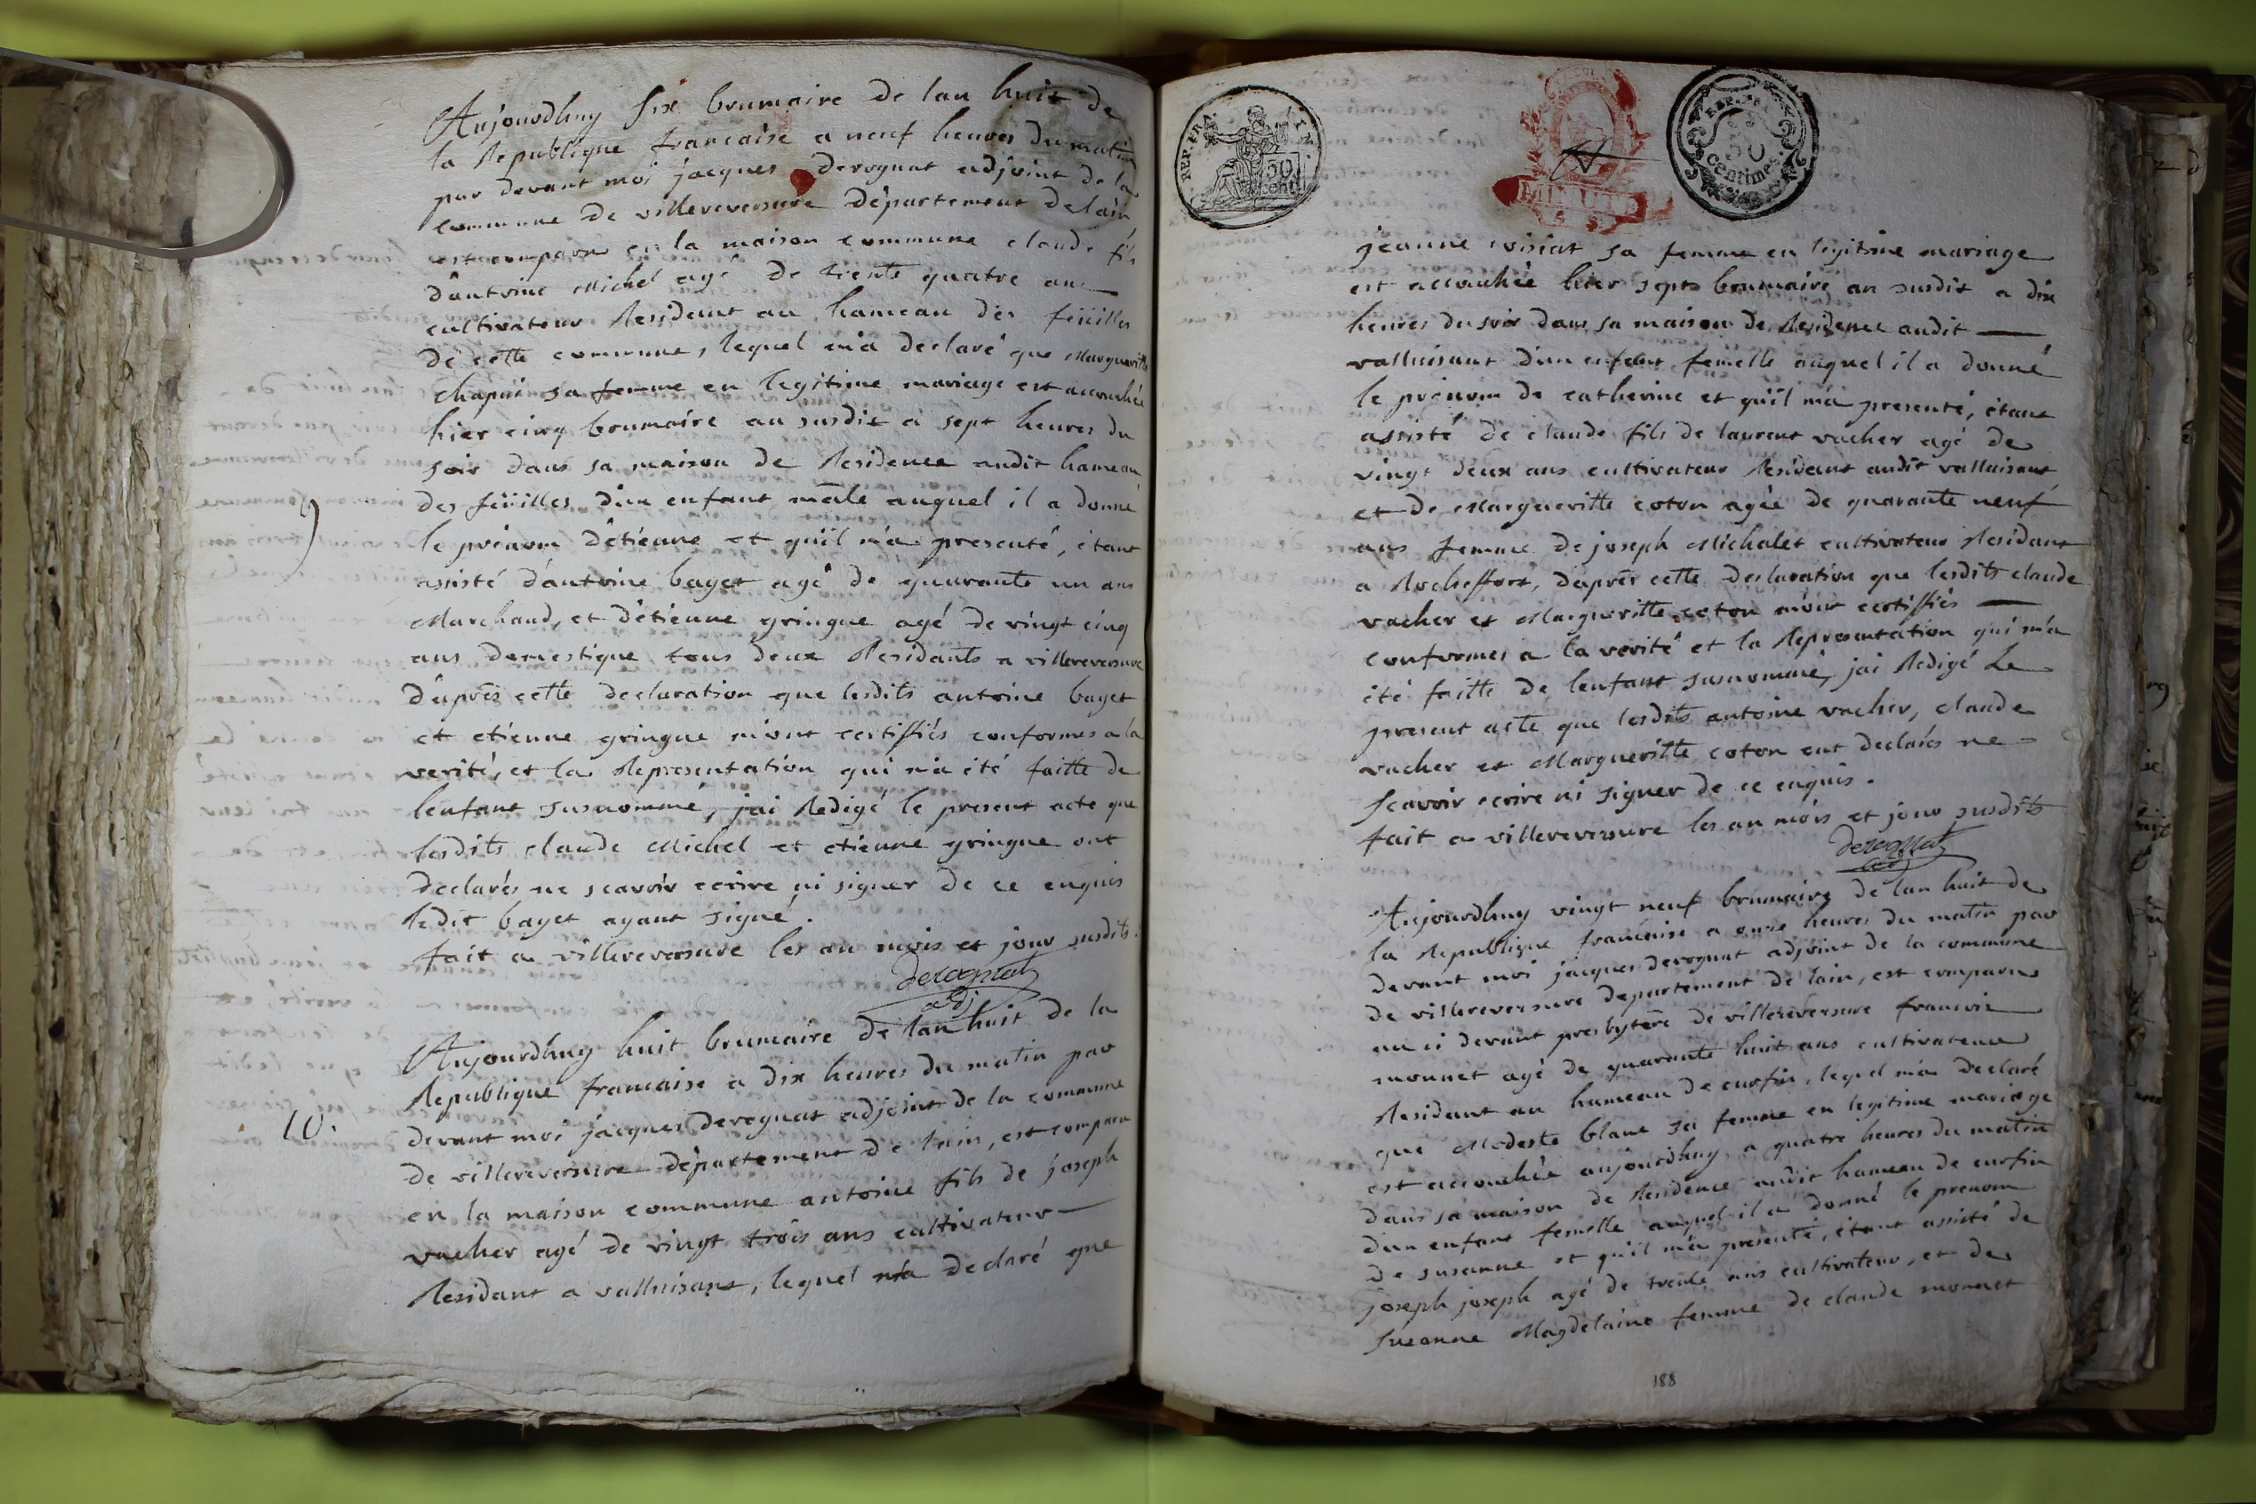 Aujourdhuy six brumaire de lan huit de
la Republique francaise a neuf heures du matin
par devant moi jacques derognat adjoint de la
commune de villereversure département delain
est comparu en la maison commune claude fils
dantoine Michel agé de trente quatre ans
cultivateur Residant au hameau des feüilles
de cette commune, lequel m'a declaré que Margueritte
chapui sa femme en legitime mariage est accouchée
hier cinq brumaire an susdit a sept heures du
soir dans sa maison de Residence audit hameau
des feüilles d'un enfant mâle auquel il a donné
9
le prénom d'étienne et qu'il m'a presenté, étant
assisté d'antoine bayet agé de quarante un ans
Marchand, et d'étienne gringue agé de vingt cinq
ans domestique tous deux Residants a villereversure
d'après cette declaration que lesdits antoine bayet
et etienne gringue m'ont certiffiés conformes a la
verité, et la Representation qui m'a été faitte de
lenfant susnommé, jai Redigé le present acte que
lesdits claude Michel et etienne gringue ont
declarés ne scavoir ecrire ni signer de ce enquis
ledit bayet ayant signé.
fait a villereversure les an mois et jour susdits.
derognat
adj
Aujourdhuy huit brumaire de lan huit de la
Republique francaise a dix heures du matin par
10.
devant moi jacques derognat adjoint de la commune
de villereversure département de lain, est comparu
en la maison commune antoine fils de joseph
vacher agé de vingt trois ans cultivateur
Residant a valluisant, lequel m'a declaré que
REP. FRA.
50
cent.
MINUTE
REP. FRA.
50
centimes
jeanne sa femme en legitime mariage
est accouchée hier sept brumaire an susdit a dix
heures du soir dans sa maison de Residence audit
valluisant d'un enfant femelle auquel il a donné
le prénom de catherine et qu'il m'a presenté, étant
assisté de claude fils de laurent vacher agé de
vingt deux ans cultivateur Residant audit valluisant
et de Margueritte coton agée de quarante neuf
ans femme de joseph Michalet cultivateur Residant
a Rocheffort, d'après cette declaration que lesdits claude
vacher et Margueritte coton m'ont certiffiés
conformes a la verité et la Representation qui m'a
été faitte de lenfant susnommé, jai Redigé Le
present acte que lesdits antoine vacher, claude
vacher et Margueritte coton ont declarés ne
scavoir ecrire ni signer de ce enquis.
fait a villereversure les an mois et jour susdits
derognat
adj
Aujourdhuy vingt neuf brumaire de lan huit de
la Republique francaise a onze heures du matin par
devant moi jacques derognat adjoint de la commune
de villereversure departement de lain, est comparu
au ci devant presbytere de villereversure francois
monnet agé de quarante huit ans cultivateur
Residant au hameau de curfin, lequel m'a declaré
que Modeste blanc sa femme en legitime mariage
est accouchée aujourdhuy a quatre heures du matin
dans sa maison de Residence audit hameau de curfin
d'un enfant femelle auquel il a donné le prenom
de susanne et qu'il m'a presenté, étant assisté de
joseph joseph agé de trente ans cultivateur, et de
susanne Magdelaine femme de claude monnet
188